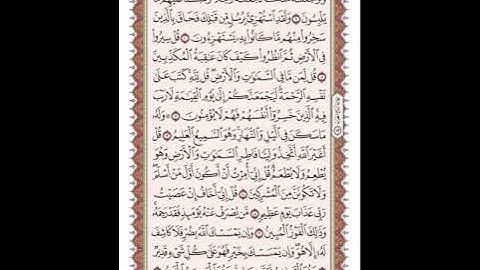 يَلْبِسُونَ ۝ وَلَقَدِ ٱسْتُهْزِئَ بِرُسُلٍ مِّن قَبْلِكَ فَحَاقَ بِٱلَّذِينَ
سَخِرُوا۟ مِنْهُم مَّا كَانُوا۟ بِهِۦ يَسْتَهْزِءُونَ ۝ قُلْ سِيرُوا۟
فِى ٱلْأَرْضِ ثُمَّ ٱنظُرُوا۟ كَيْفَ كَانَ عَٰقِبَةُ ٱلْمُكَذِّبِينَ ۝
قُل لِّمَن مَّا فِى ٱلسَّمَٰوَٰتِ وَٱلْأَرْضِ ۖ قُل لِّلَّهِ ۚ كَتَبَ عَلَىٰ
نَفْسِهِ ٱلرَّحْمَةَ ۚ لَيَجْمَعَنَّكُمْ إِلَىٰ يَوْمِ ٱلْقِيَٰمَةِ لَا رَيْبَ
فِيهِ ۚ ٱلَّذِينَ خَسِرُوٓا۟ أَنفُسَهُمْ فَهُمْ لَا يُؤْمِنُونَ ۝ ۞ وَلَهُۥ
مَا سَكَنَ فِى ٱلَّيْلِ وَٱلنَّهَارِ ۚ وَهُوَ ٱلسَّمِيعُ ٱلْعَلِيمُ ۝
قُلْ أَغَيْرَ ٱللَّهِ أَتَّخِذُ وَلِيًّا فَاطِرِ ٱلسَّمَٰوَٰتِ وَٱلْأَرْضِ وَهُوَ
يُطْعِمُ وَلَا يُطْعَمُ ۗ قُلْ إِنِّىٓ أُمِرْتُ أَنْ أَكُونَ أَوَّلَ مَنْ أَسْلَمَ ۖ
وَلَا تَكُونَنَّ مِنَ ٱلْمُشْرِكِينَ ۝ قُلْ إِنِّىٓ أَخَافُ إِنْ عَصَيْتُ
رَبِّى عَذَابَ يَوْمٍ عَظِيمٍ ۝ مَّن يُصْرَفْ عَنْهُ يَوْمَئِذٍ فَقَدْ رَحِمَهُۥ ۚ
وَذَٰلِكَ ٱلْفَوْزُ ٱلْمُبِينُ ۝ وَإِن يَمْسَسْكَ ٱللَّهُ بِضُرٍّ فَلَا كَاشِفَ
لَهُۥٓ إِلَّا هُوَ ۖ وَإِن يَمْسَسْكَ بِخَيْرٍ فَهُوَ عَلَىٰ كُلِّ شَىْءٍ قَدِيرٌ